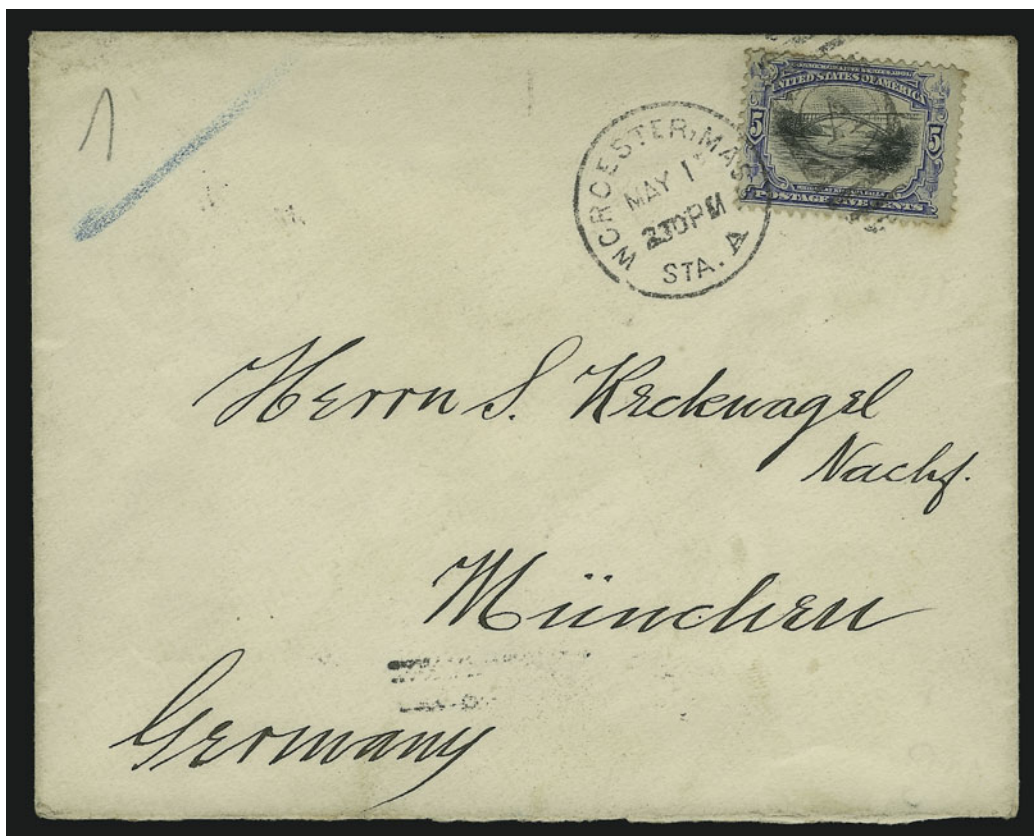 1
UNITED STATES OF AMERICA
5 5
POSTAGE FIVE CENTS
WORCESTER, MAS
MAY 1
230PM
STA. A
Herrn S. Kecknagel
Nachf.
München
Germany